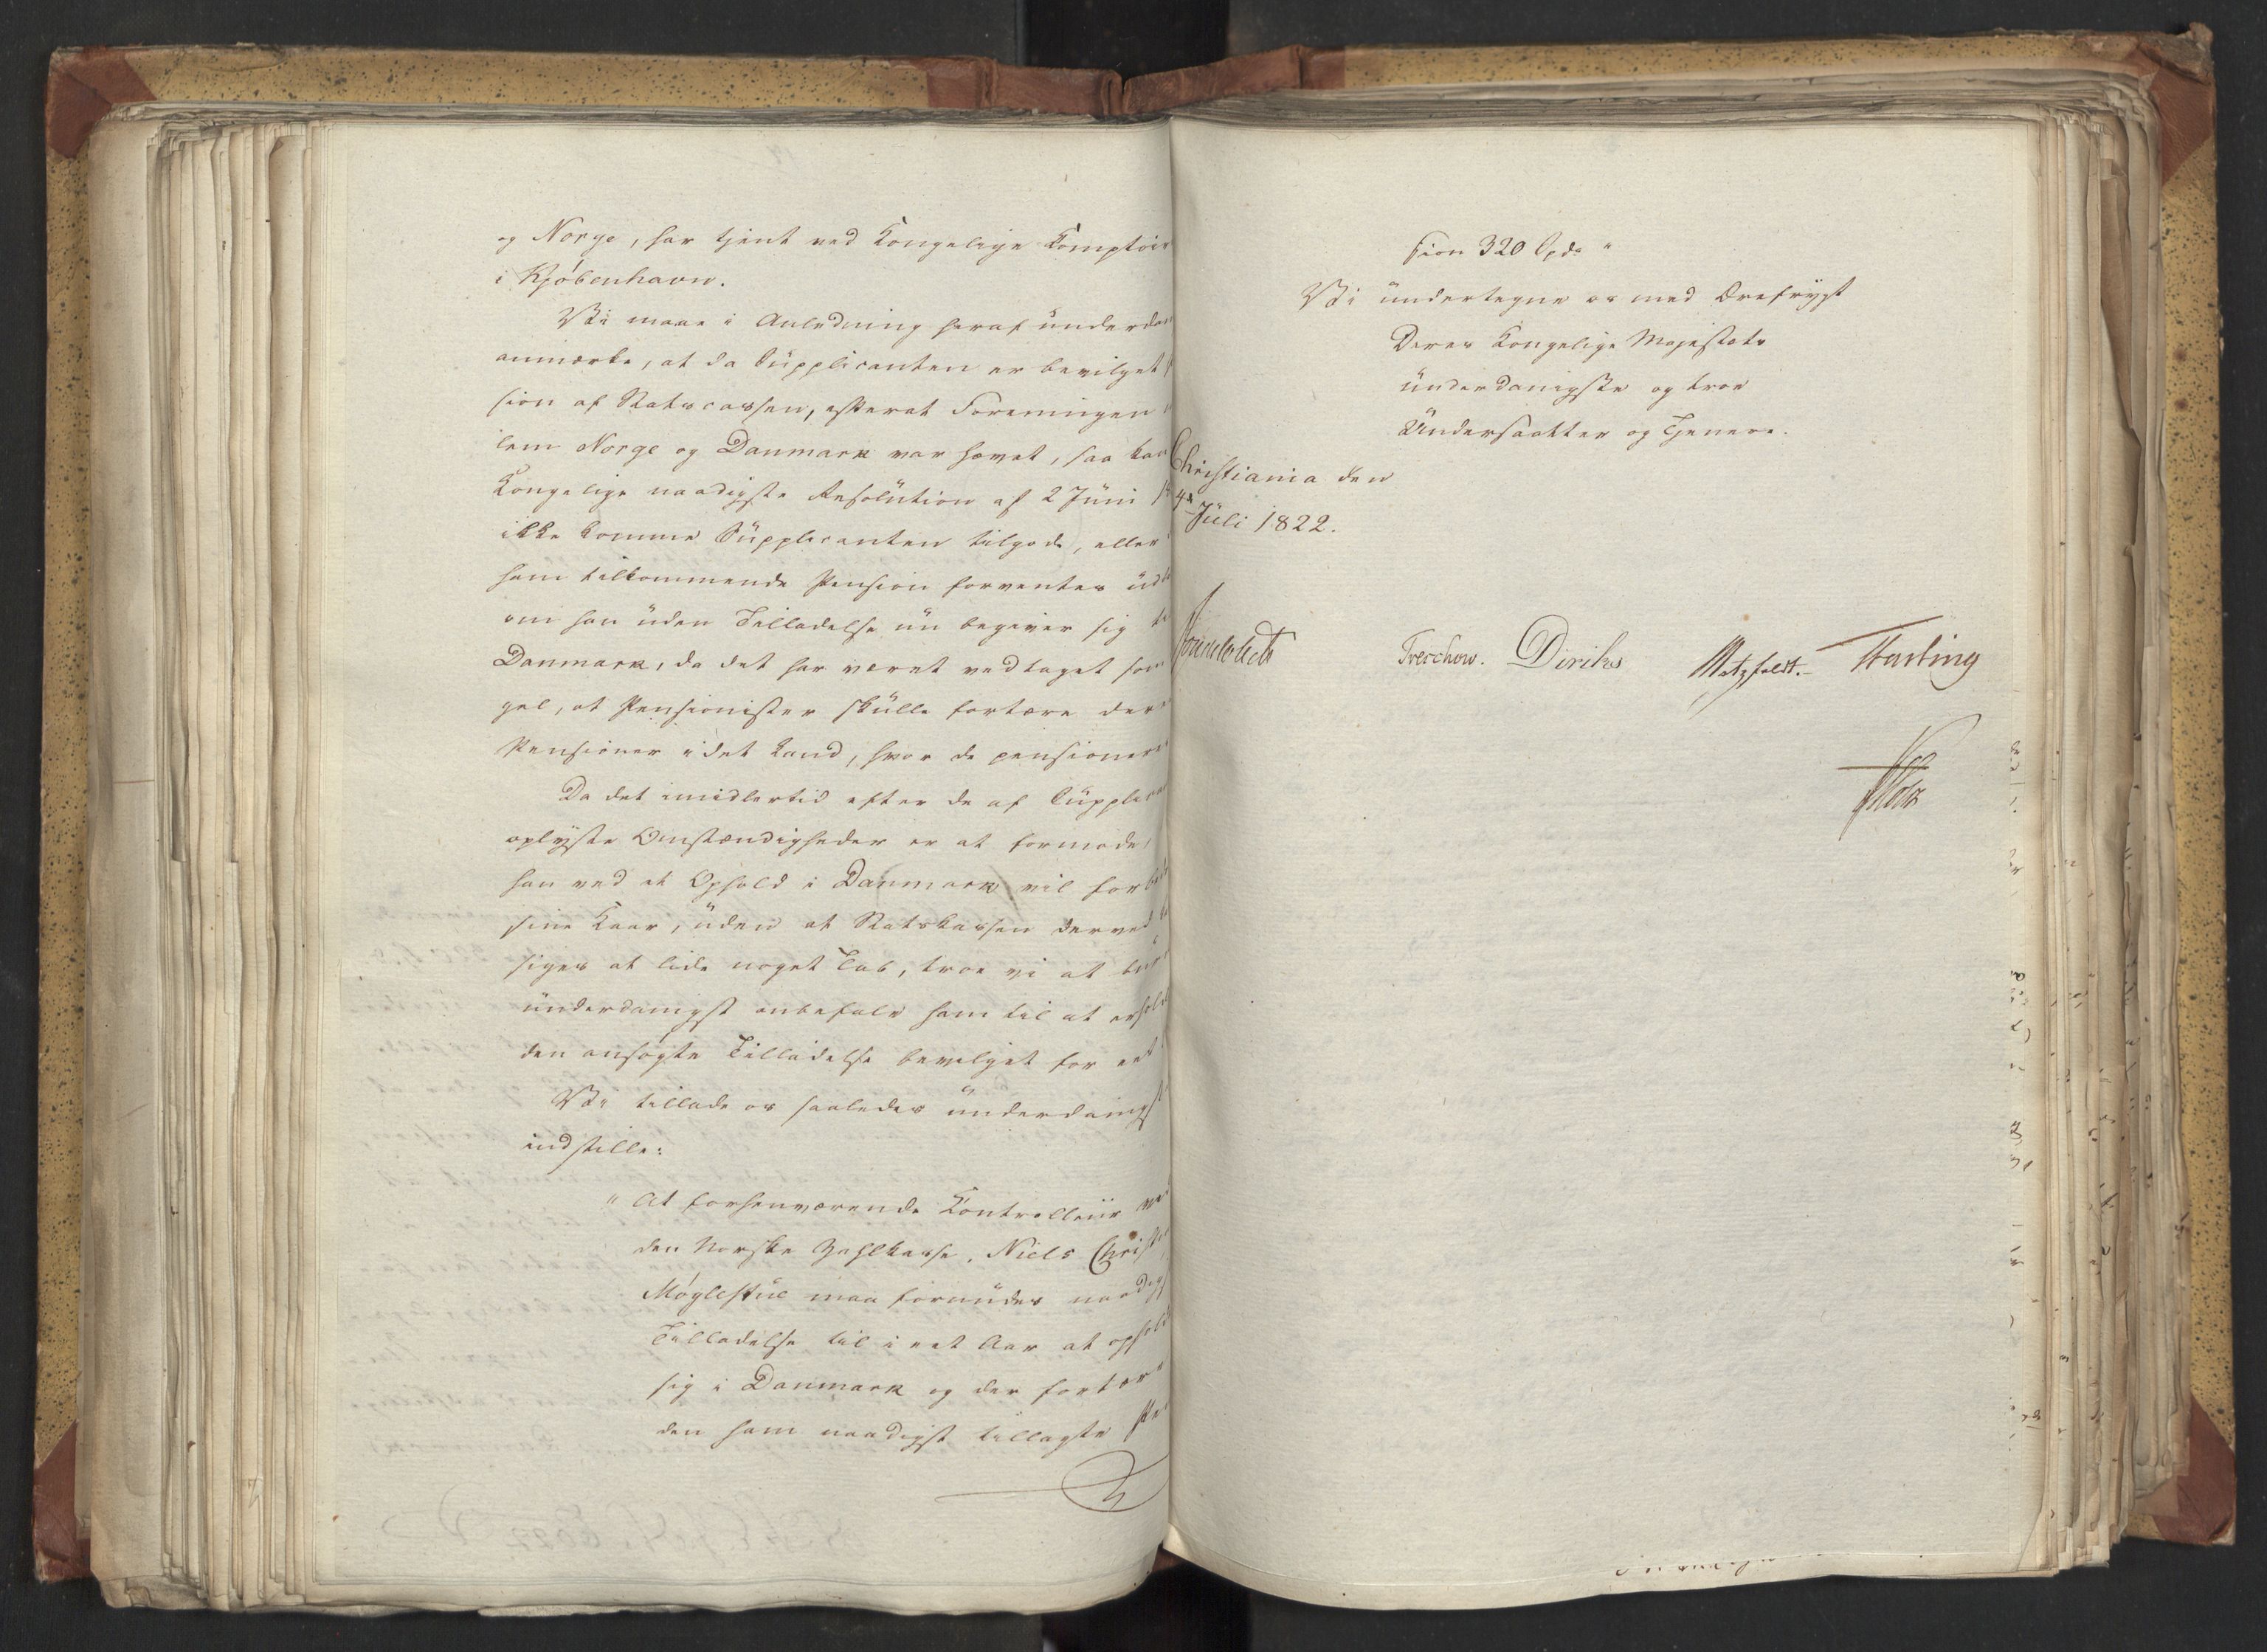 og Norge, har tjent ved Kongelige Comptoir
i Kjöbenhavn.
Vi maae i Anledning heraf underdan
anmærke, at da Supplicanten er bevilget
sion af Statscassen, efterat Foreningen
lem Norge og Danmark var hævet, saa kan
Kongelige naadigste Resolution af 2 Juni
ikke komme Supplicanten tilgode, eller
ham tilkommende Pension forventes üd
om han uden Tilladelse nu begiver sig
Danmark, da det har været vedtaget som
gel, at Pensionister skulle fortære der
Pensioner i det Land, hvor de pensionere
Da det imidlertid efter de af Supplican
oplyste Omstændigheder er at formode,
han ved et Ophold i Danmark vil for
sine Kaar, uden at Statskassen derved
siges at lide noget Tab, troe vi at bu
underdanigst anbefale ham til at erhold
den ansøgte Tilladelse bevilget for eet
Vi tillade os saaledes underdanigst
indstille:
" At forhenværende Controlleur ved
den Norske Zahlkasse, Niels Christ
Möglestue maa forundes naadigst
Tilladelse til i eet Aar at ophold
sig i Danmark og der fortære
den ham naadigst tillagte Pen
sion 320 Spd. "
Vi undertegne os med Ærefrygt
Deres Kongelige Majestæts
underdanigste og troe
Undersaatter og Tjenere.
Christiania den
4de Juli 1822.
Sommerhielm Treschow. Diriks Motzfeldt. Fasting
Holst